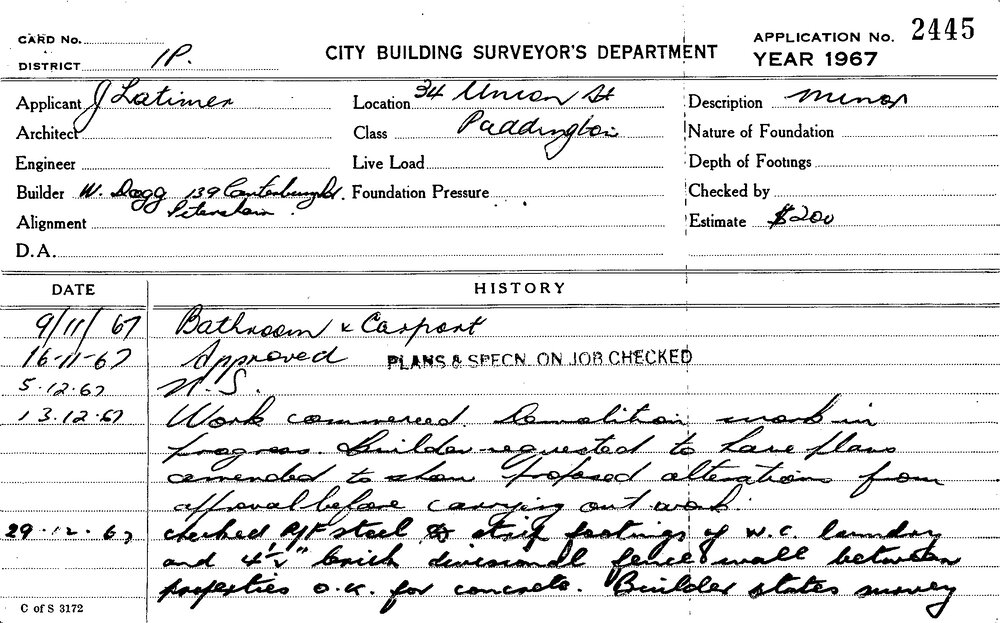 CARD No.
DISTRICT 1P.
CITY BUILDING SURVEYOR'S DEPARTMENT
APPLICATION No. 2445
YEAR 1967
Applicant J Latimer Location 34 Union St Description minor
Architect Class Paddington Nature of Foundation
Engineer Live Load Depth of Footings
Builder W. Dagg 139 Canterbury Rd. Foundation Pressure Checked by
Petersham.
Alignment Estimate $200
D.A.
DATE HISTORY
9/11/67 Bathroom & Carport
16-11-67 Approved PLANS & SPECN. ON JOB CHECKED
5.12.67 N.S.
13.12.67 Work commenced. Demolition work in
progress. Builder requested to have plans
amended to show proposed alterations from
approval before carrying out work.
29.12.67 checked R/F steel to strip footings of W.C. laundry
and 4½" brick divisional fence wall between
properties O.K. for concrete. Builder states survey
C of S 3172